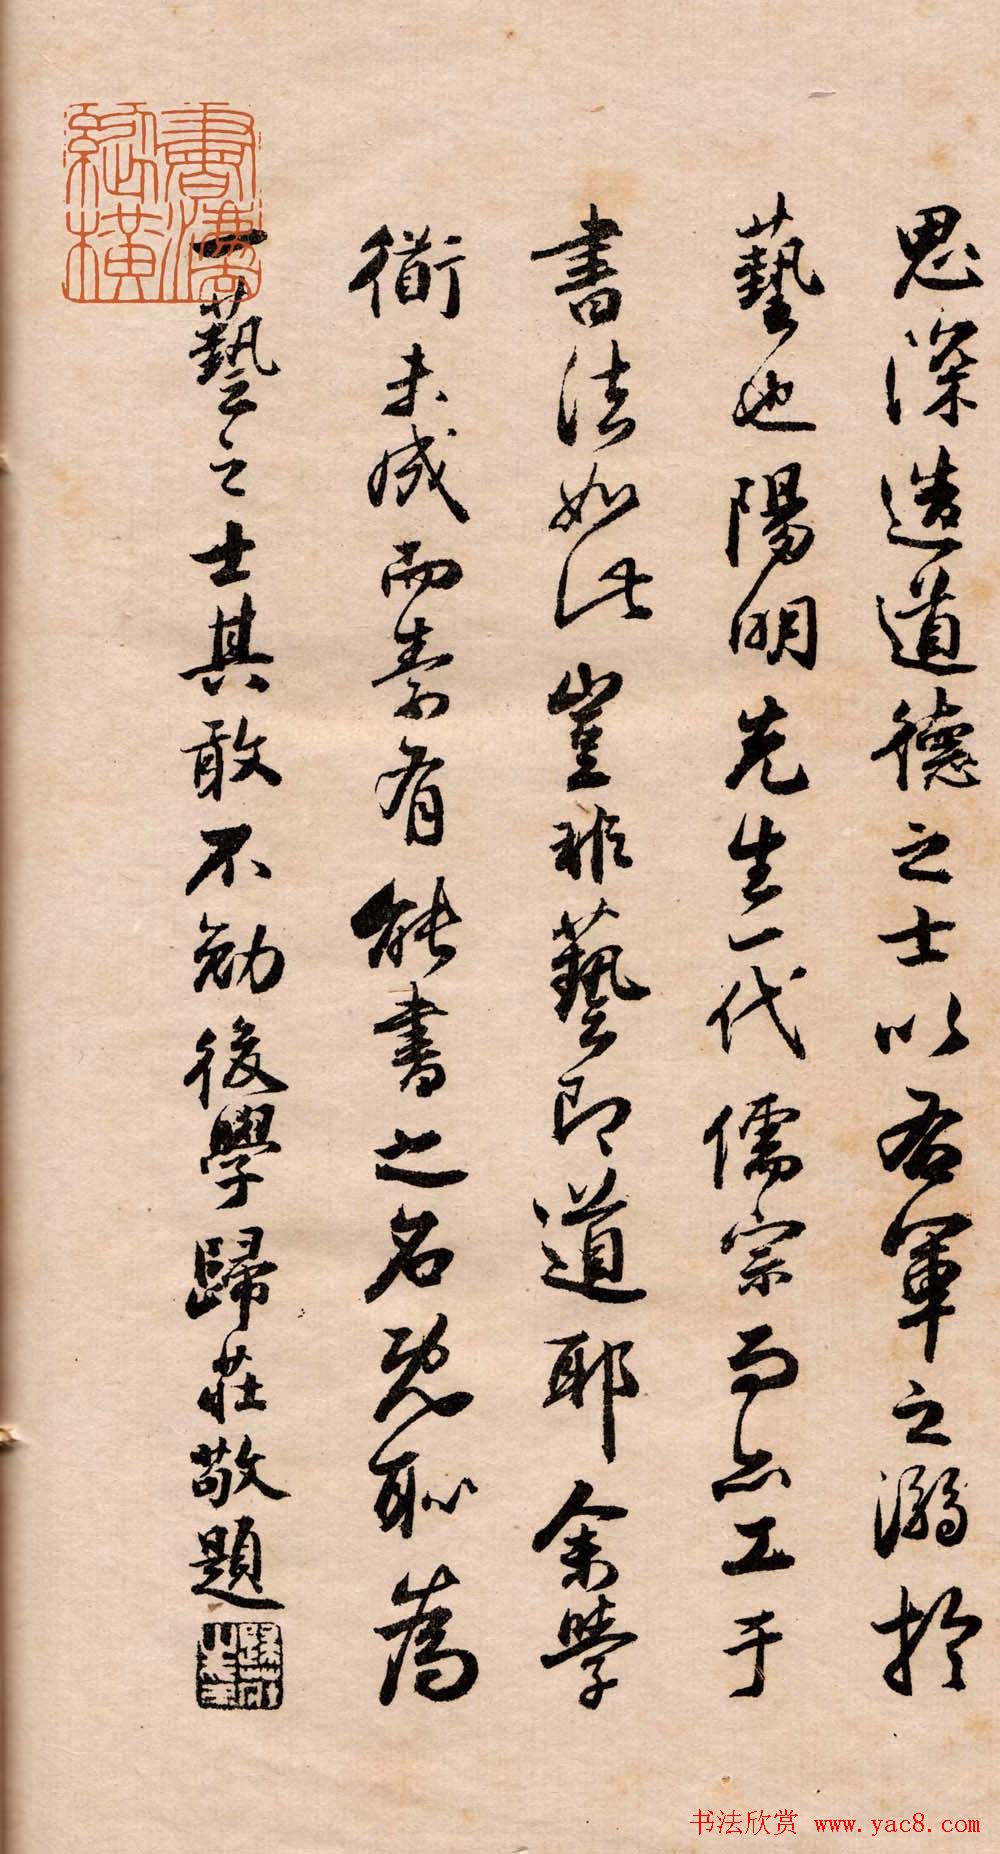 思深造道德之士以右軍之溺於
藝也陽明先生一代儒宗而亦工于
書法如此豈非藝即道耶余學
衜未成而素有能書之名既恥為
一藝之士其敢不勉後學歸莊敬題
书法欣赏 www.yac8.com